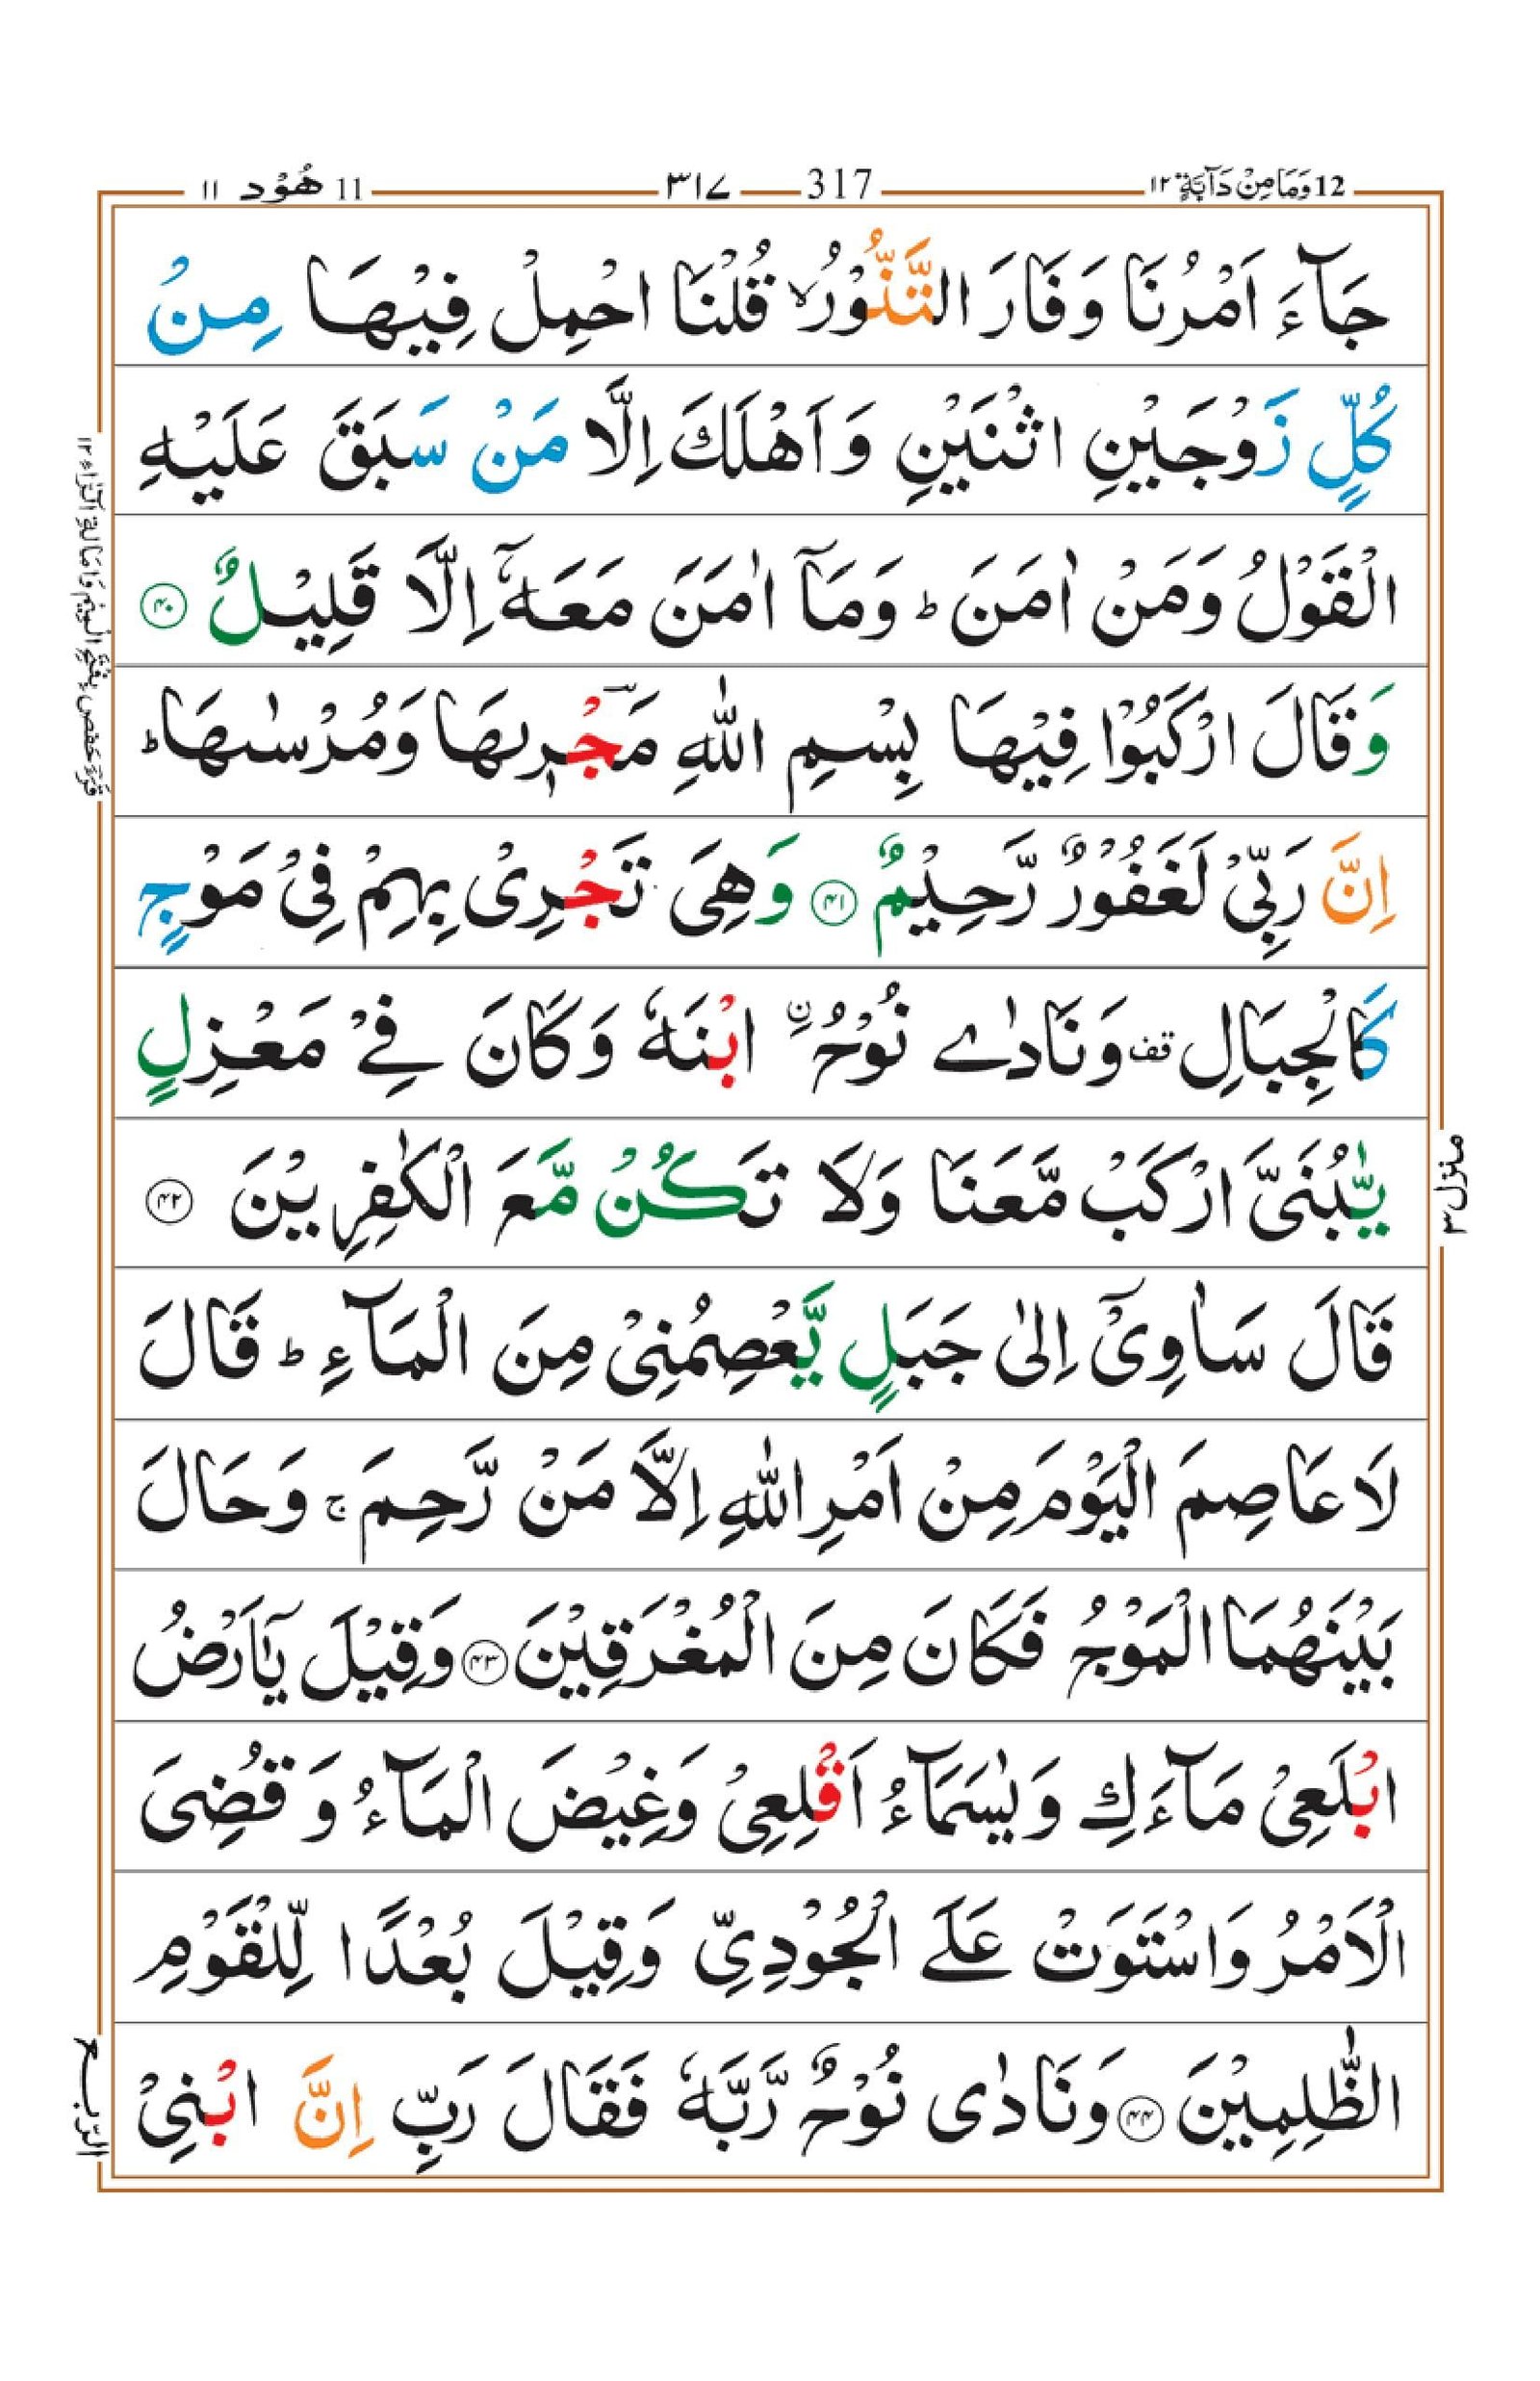 12 وَمَا مِنْ دَآبَّةٍ ١٢ 317 ٣١٧ 11 هُوْد ١١
جَآءَ اَمْرُنَا وَفَارَ التَّنُّوْرُ ۙ قُلْنَا احْمِلْ فِيْهَا مِنْ
كُلٍّ زَوْجَيْنِ اثْنَيْنِ وَاَهْلَكَ اِلَّا مَنْ سَبَقَ عَلَيْهِ
الْقَوْلُ وَمَنْ اٰمَنَ ؕ وَمَآ اٰمَنَ مَعَهٗۤ اِلَّا قَلِيْلٌ ﴿۴۰﴾
وَقَالَ ارْكَبُوْا فِيْهَا بِسْمِ اللّٰهِ مَجْرٖىهَا وَمُرْسٰىهَا ؕ
اِنَّ رَبِّيْ لَغَفُوْرٌ رَّحِيْمٌ ﴿۴۱﴾ وَهِىَ تَجْرِىْ بِهِمْ فِىْ مَوْجٍ
كَالْجِبَالِ قف وَنَادٰے نُوْحُ ۨ ابْنَهٗ وَكَانَ فِےْ مَعْزِلٍ
يّٰبُنَىَّ ارْكَبْ مَّعَنَا وَلَا تَكُنْ مَّعَ الْكٰفِرِيْنَ ﴿۴۲﴾
قَالَ سَاٰوِىْۤ اِلٰى جَبَلٍ يَّعْصِمُنِىْ مِنَ الْمَآءِ ؕ قَالَ
لَا عَاصِمَ الْيَوْمَ مِنْ اَمْرِ اللّٰهِ اِلَّا مَنْ رَّحِمَ ۚ وَحَالَ
بَيْنَهُمَا الْمَوْجُ فَكَانَ مِنَ الْمُغْرَقِيْنَ ﴿۴۳﴾ وَقِيْلَ يٰۤاَرْضُ
ابْلَعِىْ مَآءَكِ وَيٰسَمَآءُ اَقْلِعِىْ وَغِيْضَ الْمَآءُ وَقُضِىَ
الْاَمْرُ وَاسْتَوَتْ عَلَے الْجُوْدِىِّ وَقِيْلَ بُعْدًا لِّلْقَوْمِ
الظّٰلِمِيْنَ ﴿۴۴﴾ وَنَادٰى نُوْحٌ رَّبَّهٗ فَقَالَ رَبِّ اِنَّ ابْنِىْ
منزل ٣
الرّبع